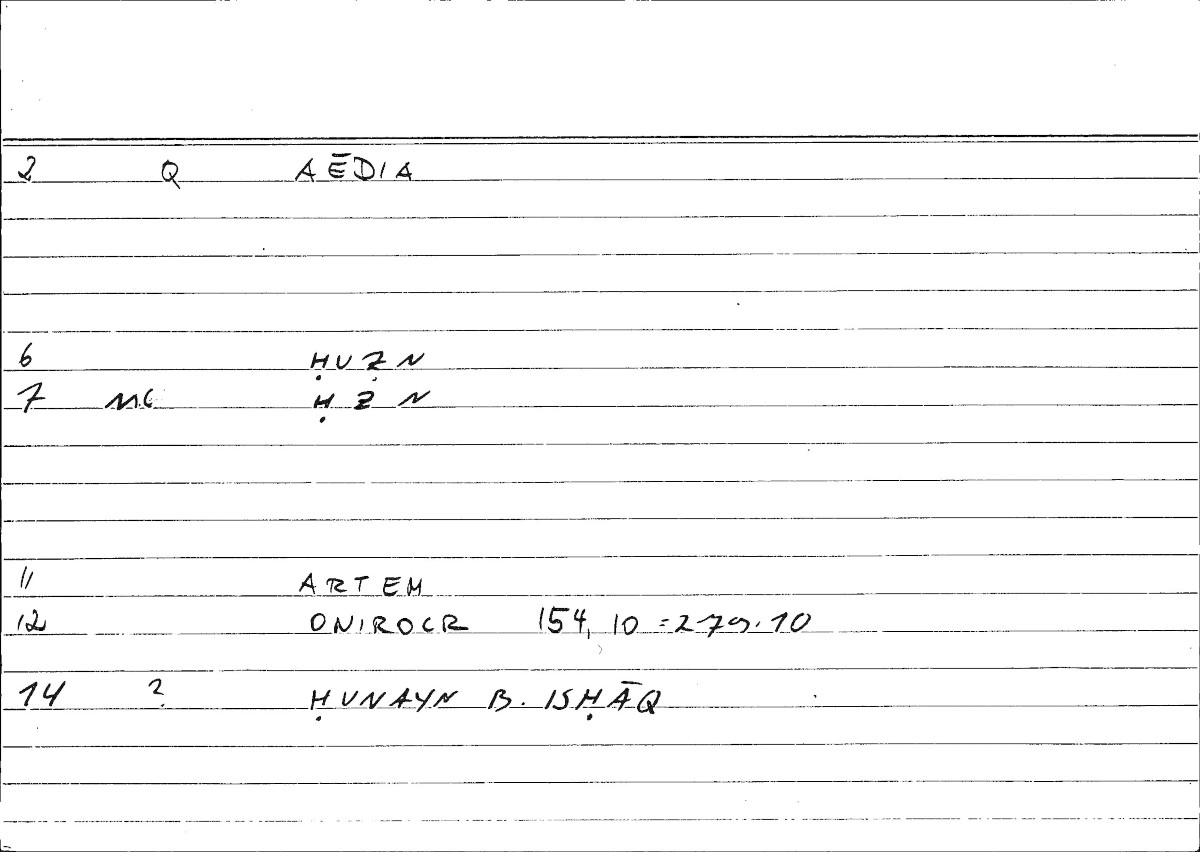 2 Q AĒDIA
6 ḤUZN
7 MC ḤZN
11 ARTEM
12 ONIROCR 154, 10 = 279.10
14 ? ḤUNAYN B. ISḤĀQ